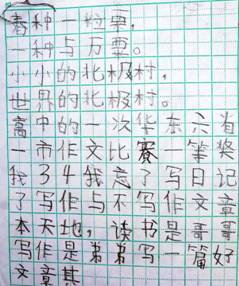 春种一粒粟，
一种与万栗。
小小的北极村，
世界的北极村。
高中的一次华东六省
一市作文比赛一等奖
我34我忘了写日记
了写作与不写作文章
本天地，读书是哥哥
写作是弟弟写一篇好
文章其